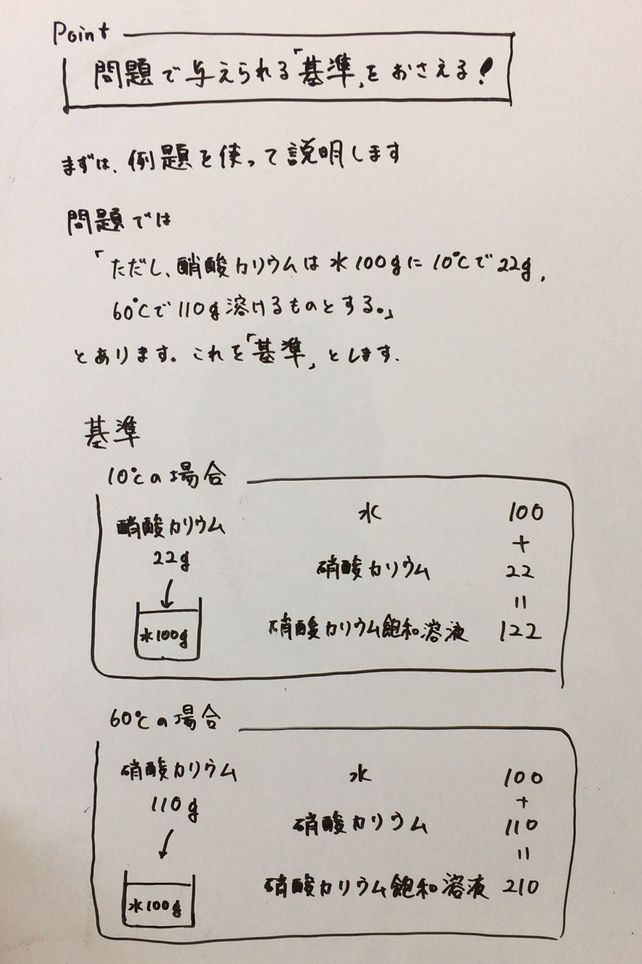 Point
問題で与えられる「基準」をおさえる!
まずは、例題を使って説明します
問題では
「ただし、硝酸カリウムは水100gに10℃で22g,
60℃で110g溶けるものとする。」
とあります。これを「基準」とします.
基準
10℃の場合
硝酸カリウム
22g
水100g
水 100
+
硝酸カリウム 22
=
硝酸カリウム飽和溶液 122
60℃の場合
硝酸カリウム
110g
水100g
水 100
+
硝酸カリウム 110
=
硝酸カリウム飽和溶液 210